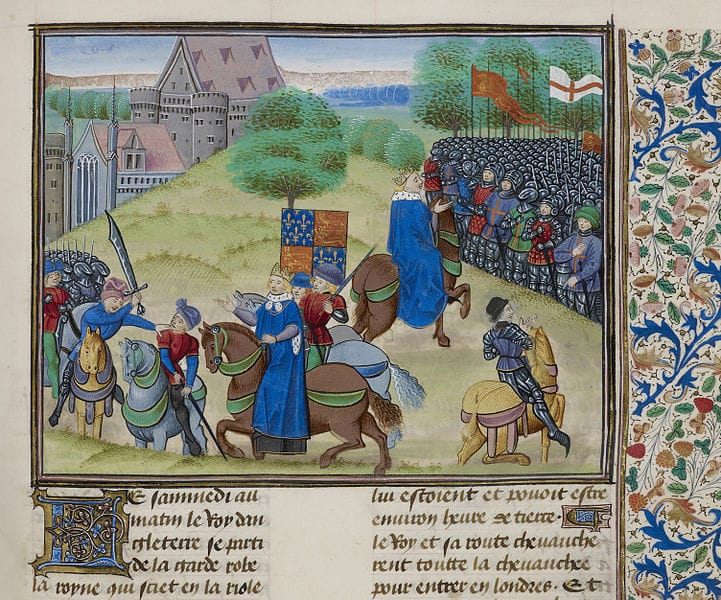 LE sammedi au
matin le Roy dan
gleterre se parti
de la garde robe
la royne qui sciet en la riole
lui estoient et pouoit estre
environ heure de tierce.
le Roy et sa route chevauche
rent toutte la chevauchee
pour entrer en londres. Et